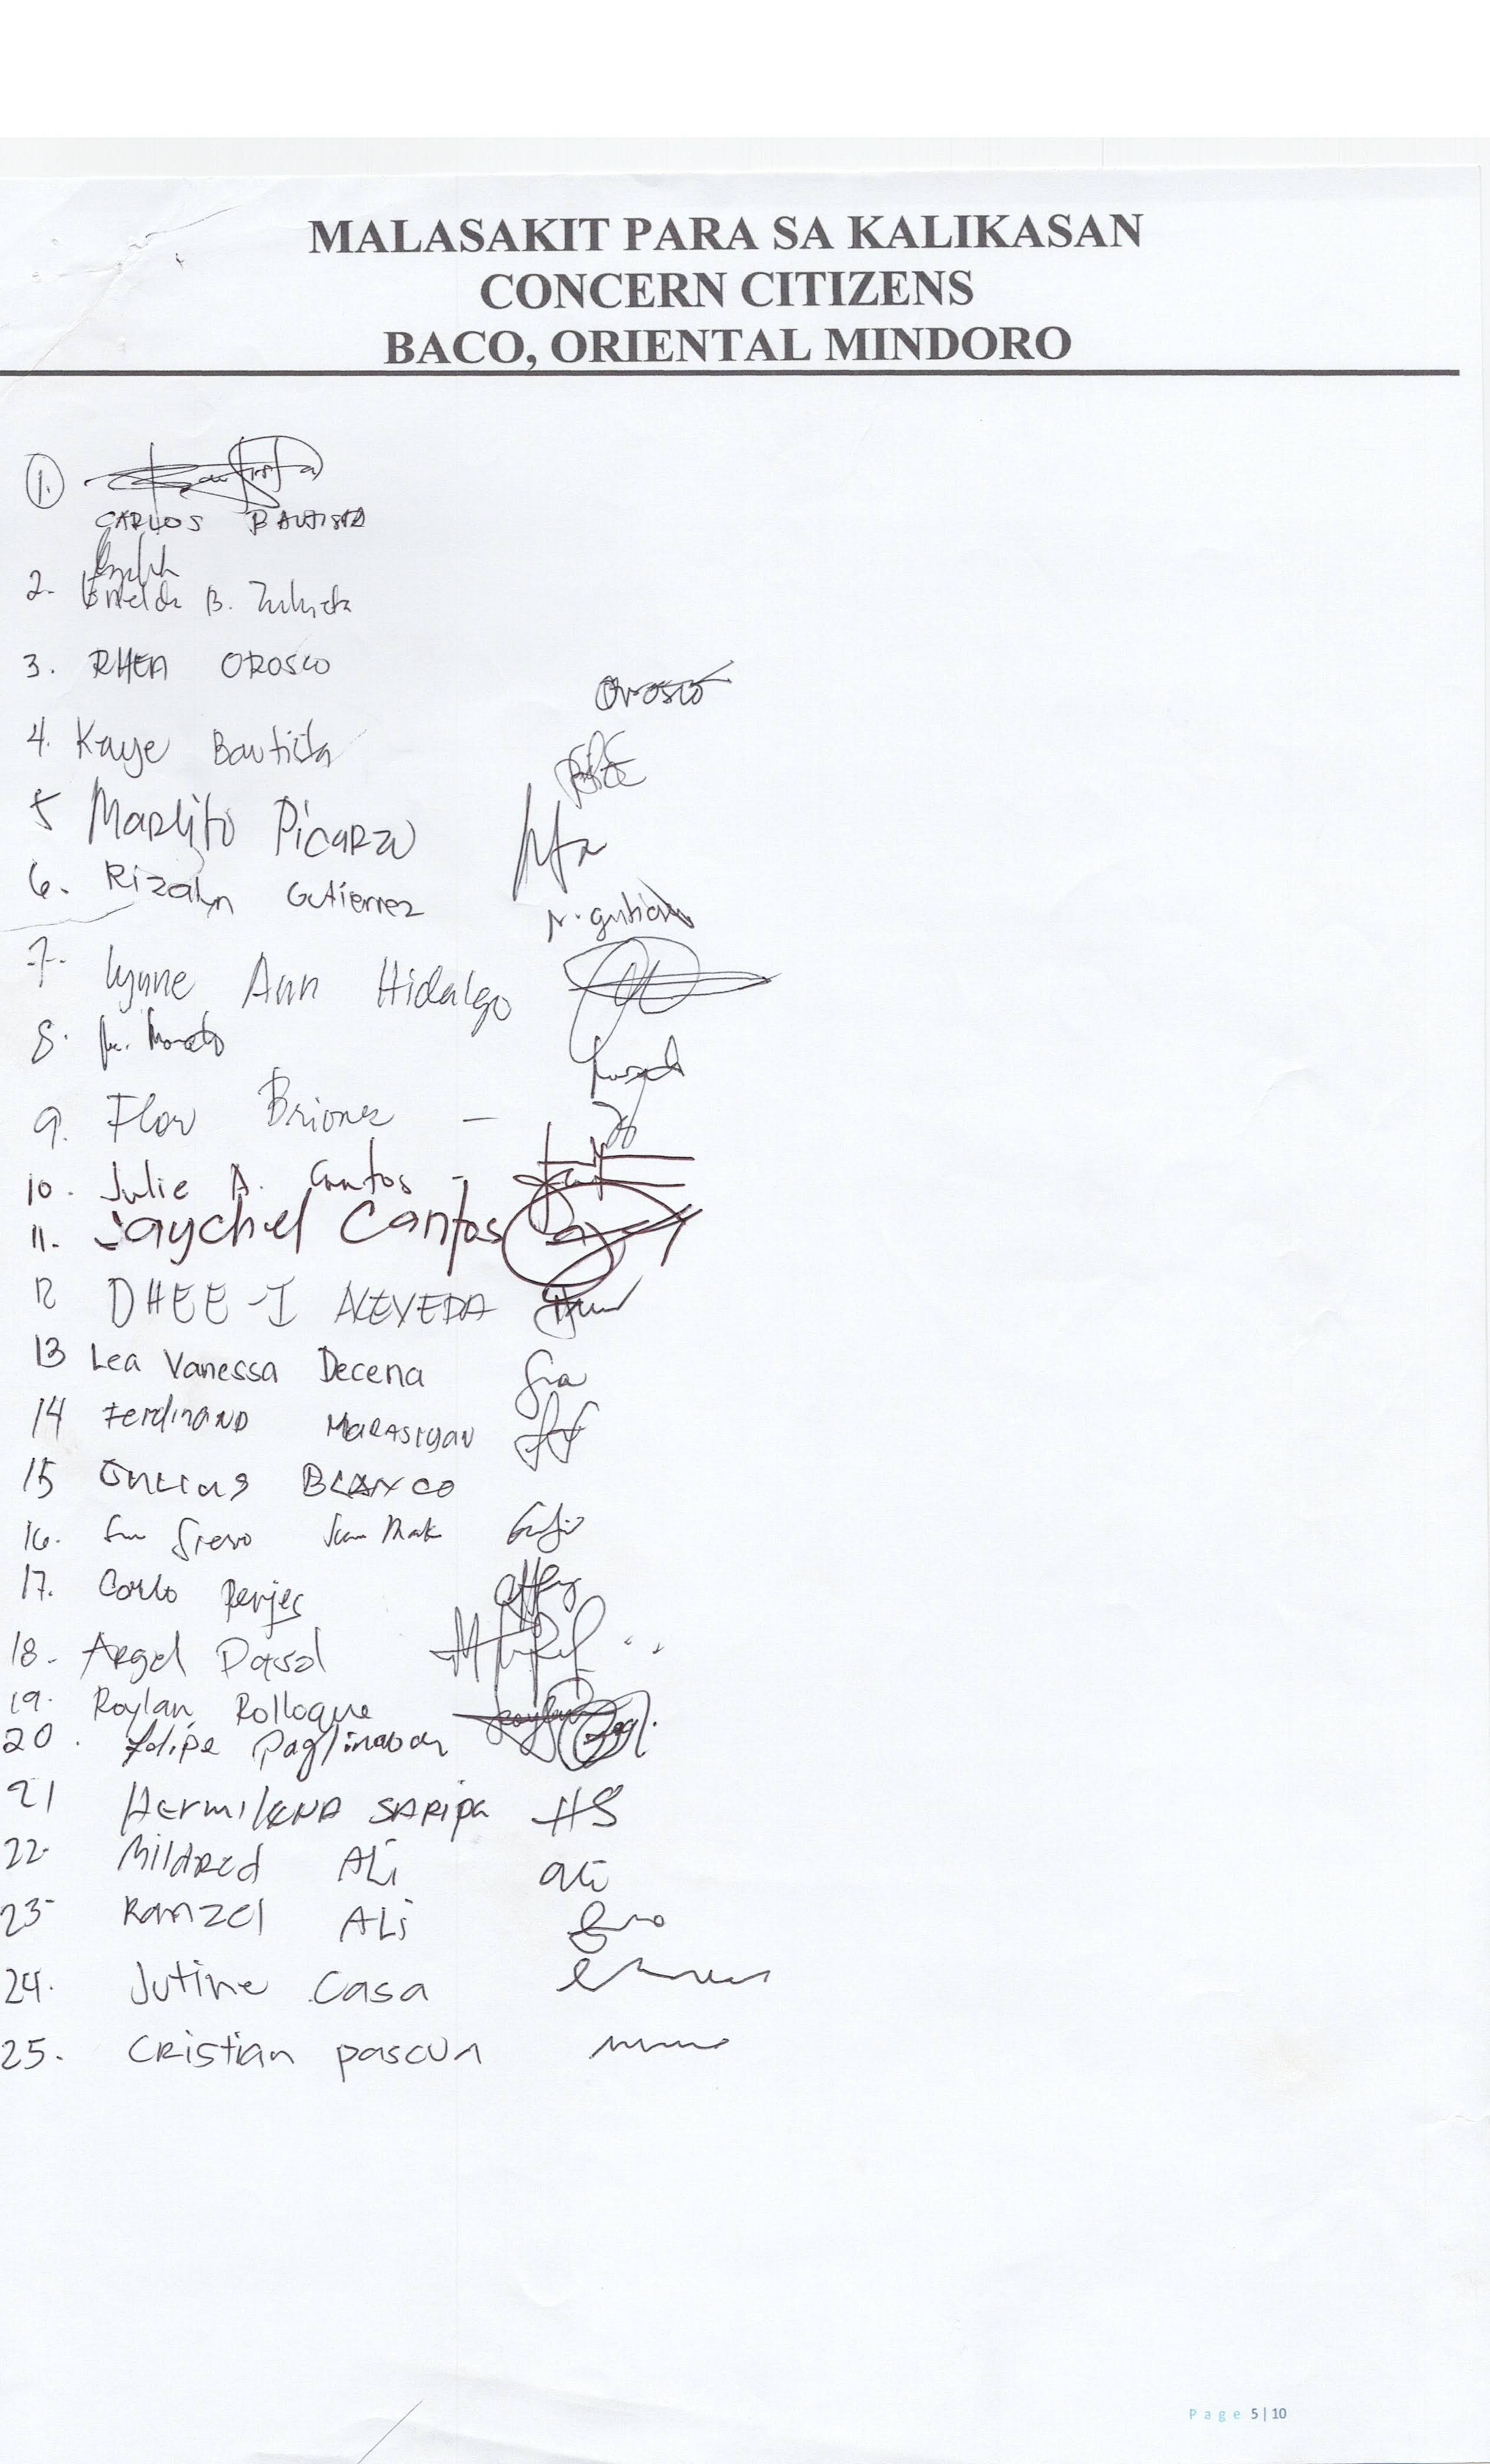 MALASAKIT PARA SA KALIKASAN
CONCERN CITIZENS
BACO, ORIENTAL MINDORO
1.
CARLOS BAUTISTA
2. B.
3. RHEA OROSCO Orosco
4. Kaye Bautista
5 Marlito Picarzo
6. Rizalyn Gutierrez
7. Lynne Ann Hidalgo
8.
9. Flor Briones -
10. Julie A. Cantos -
11. Jaychel Cantos
12 DHEE-J ACEVEDA
13 Lea Vanessa Decena
14 Ferdinand MARASIGAN
15 BLANCO
16.
17. Carlo
18. Argel
19. Roylan Rolloque
20. Felipe Paglinawan
21 HS
22 Mildred Ali ali
23 Ramzel Ali
24. Jutine Casa
25. Cristian pascua
Page 5|10